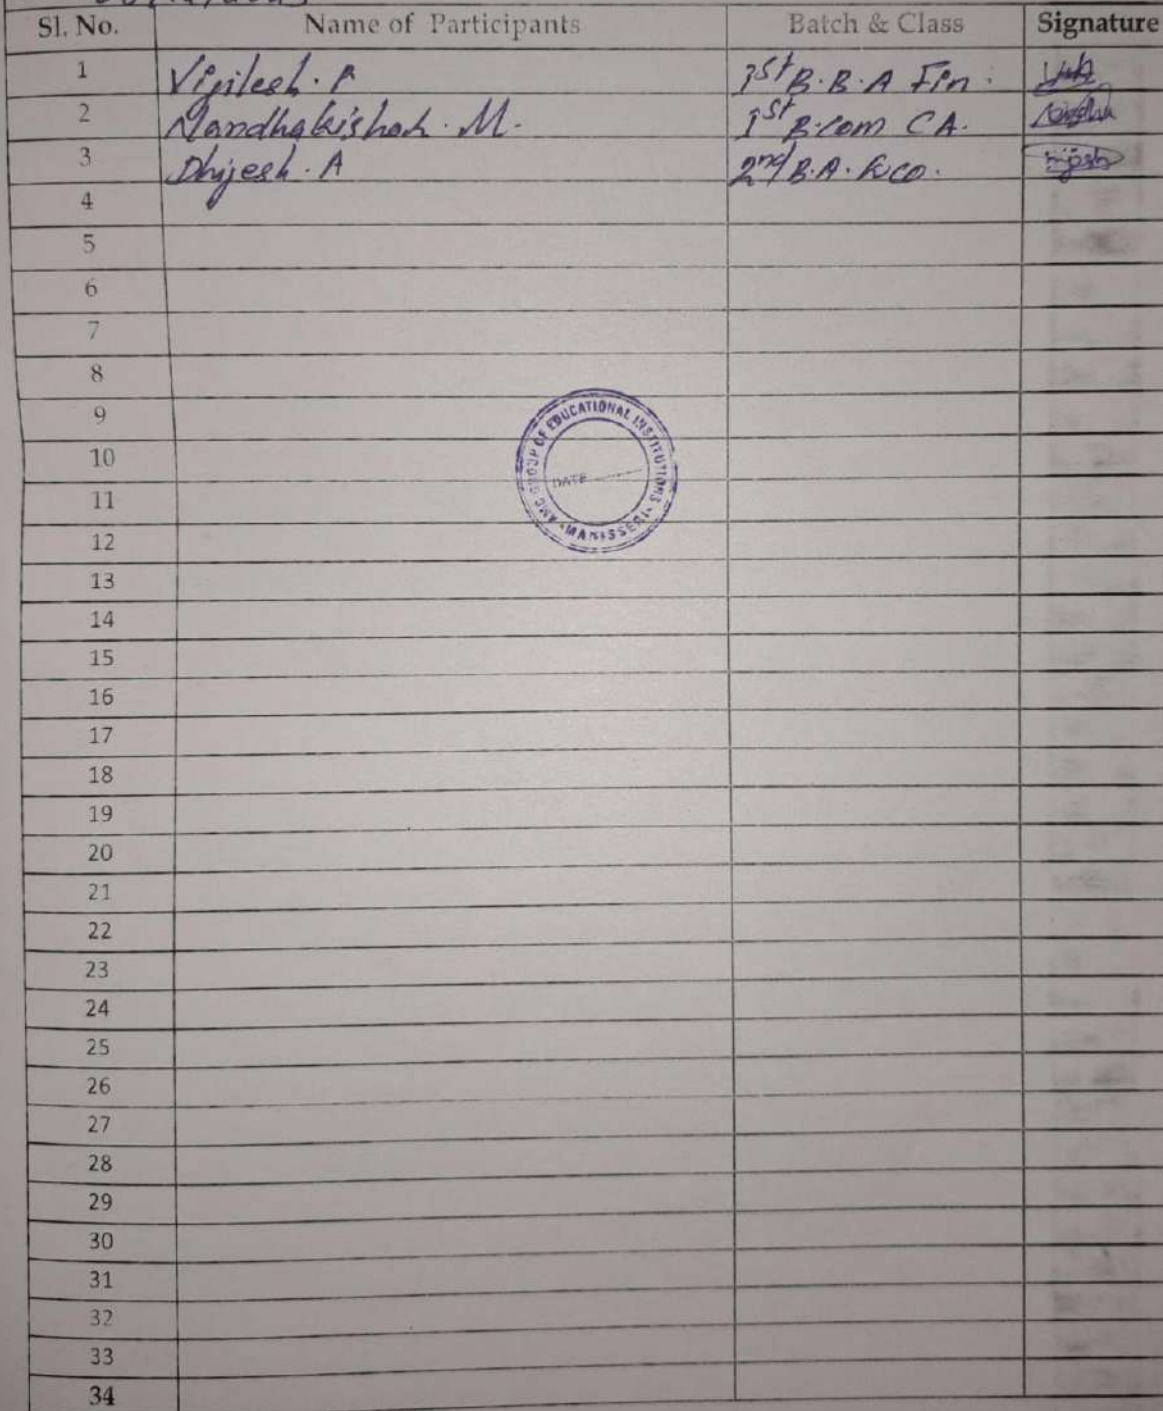 Sl. No. Name of Participants Batch & Class Signature
1 Vijilesh. P 1st B.B.A Fin.
2 Nandhakishor. M. 1st B.com CA.
3 Dhijesh. A 2nd B.A. Eco.
4
5
6
7
8
9
10
11
12
13
14
15
16
17
18
19
20
21
22
23
24
25
26
27
28
29
30
31
32
33
34
AMC GROUP OF EDUCATIONAL INSTITUTIONS
DATE
MANISSERI